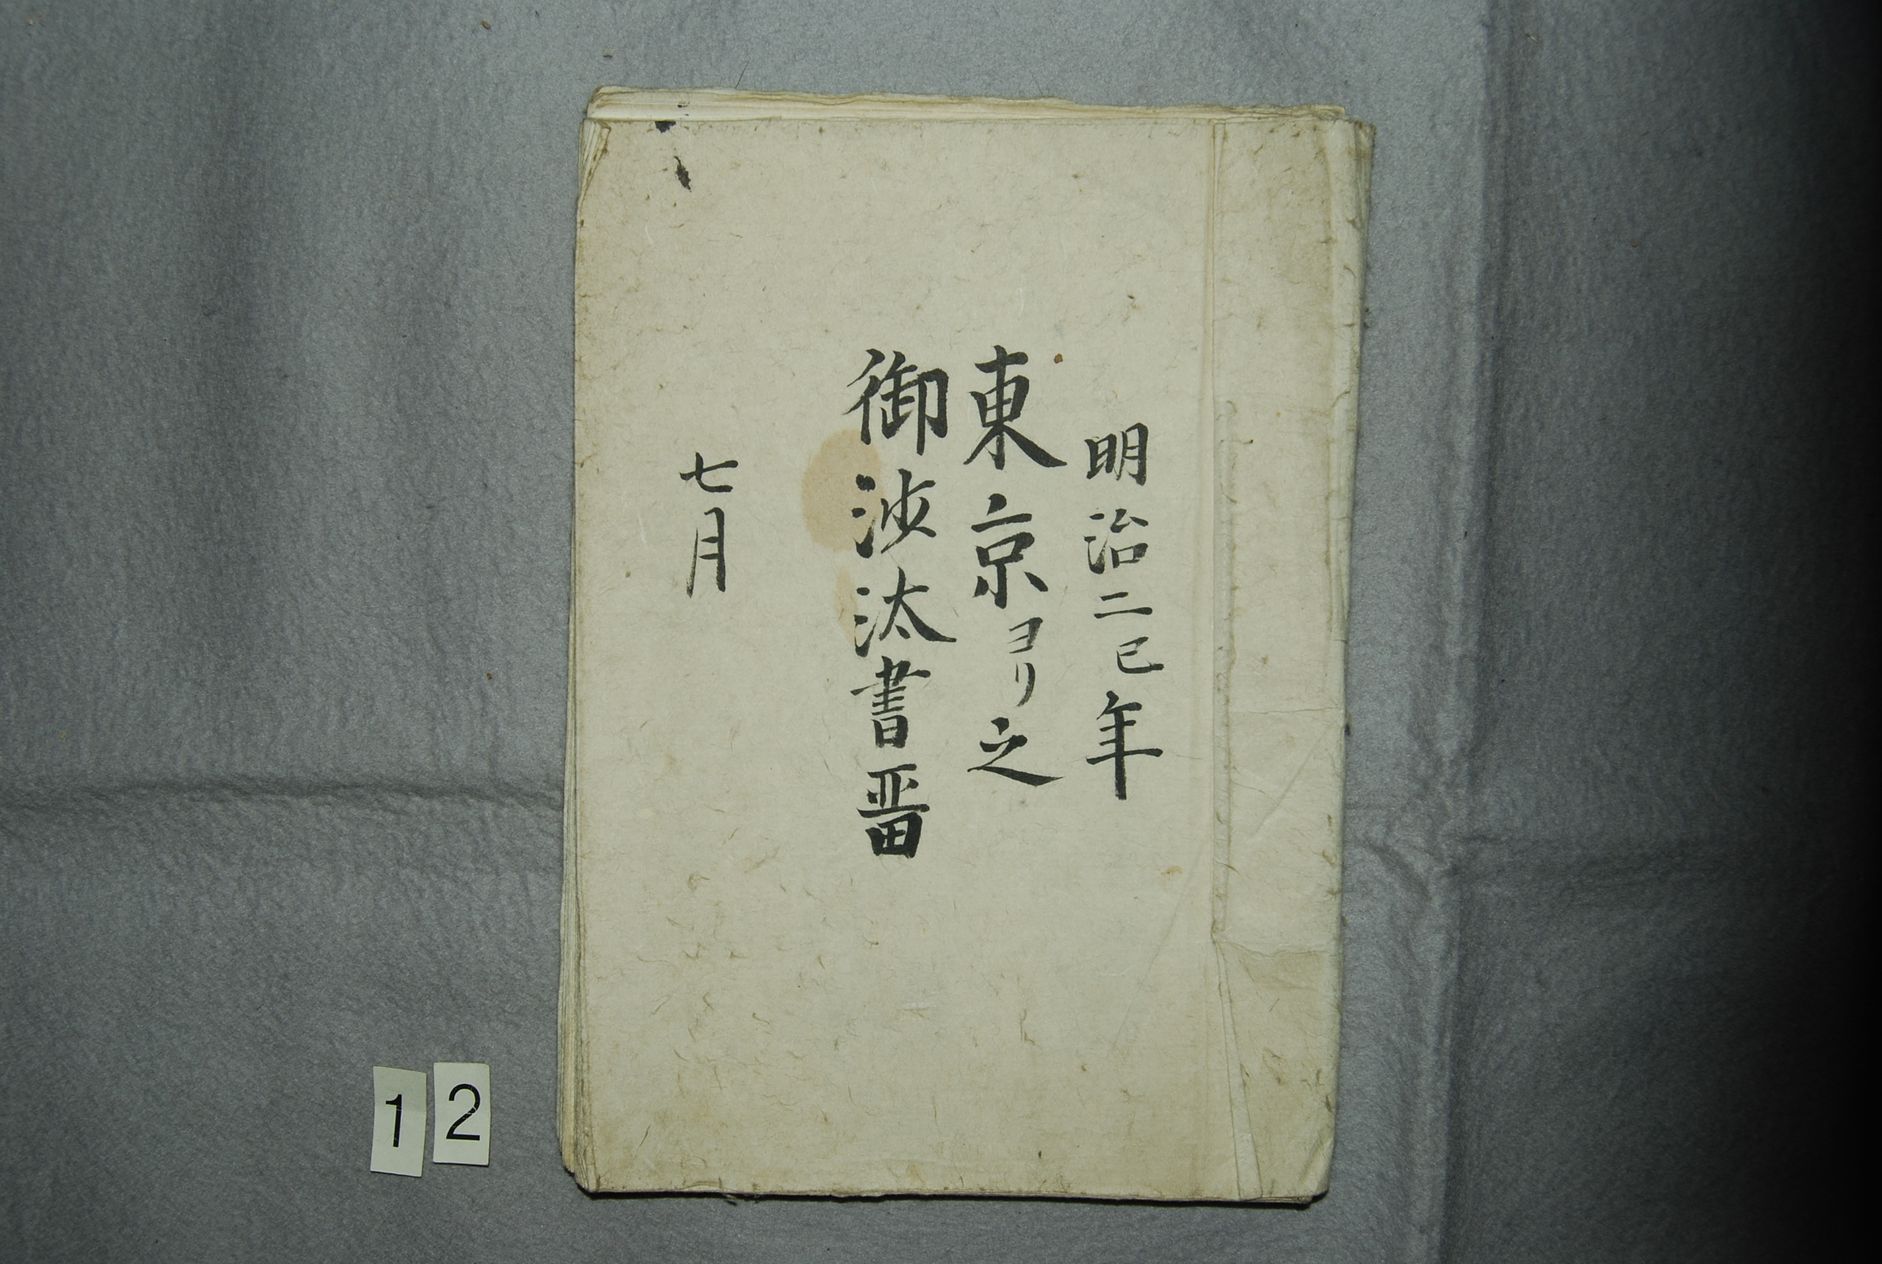 明治二巳年
東京ヨリ之
御沙汰書畨
七月
12